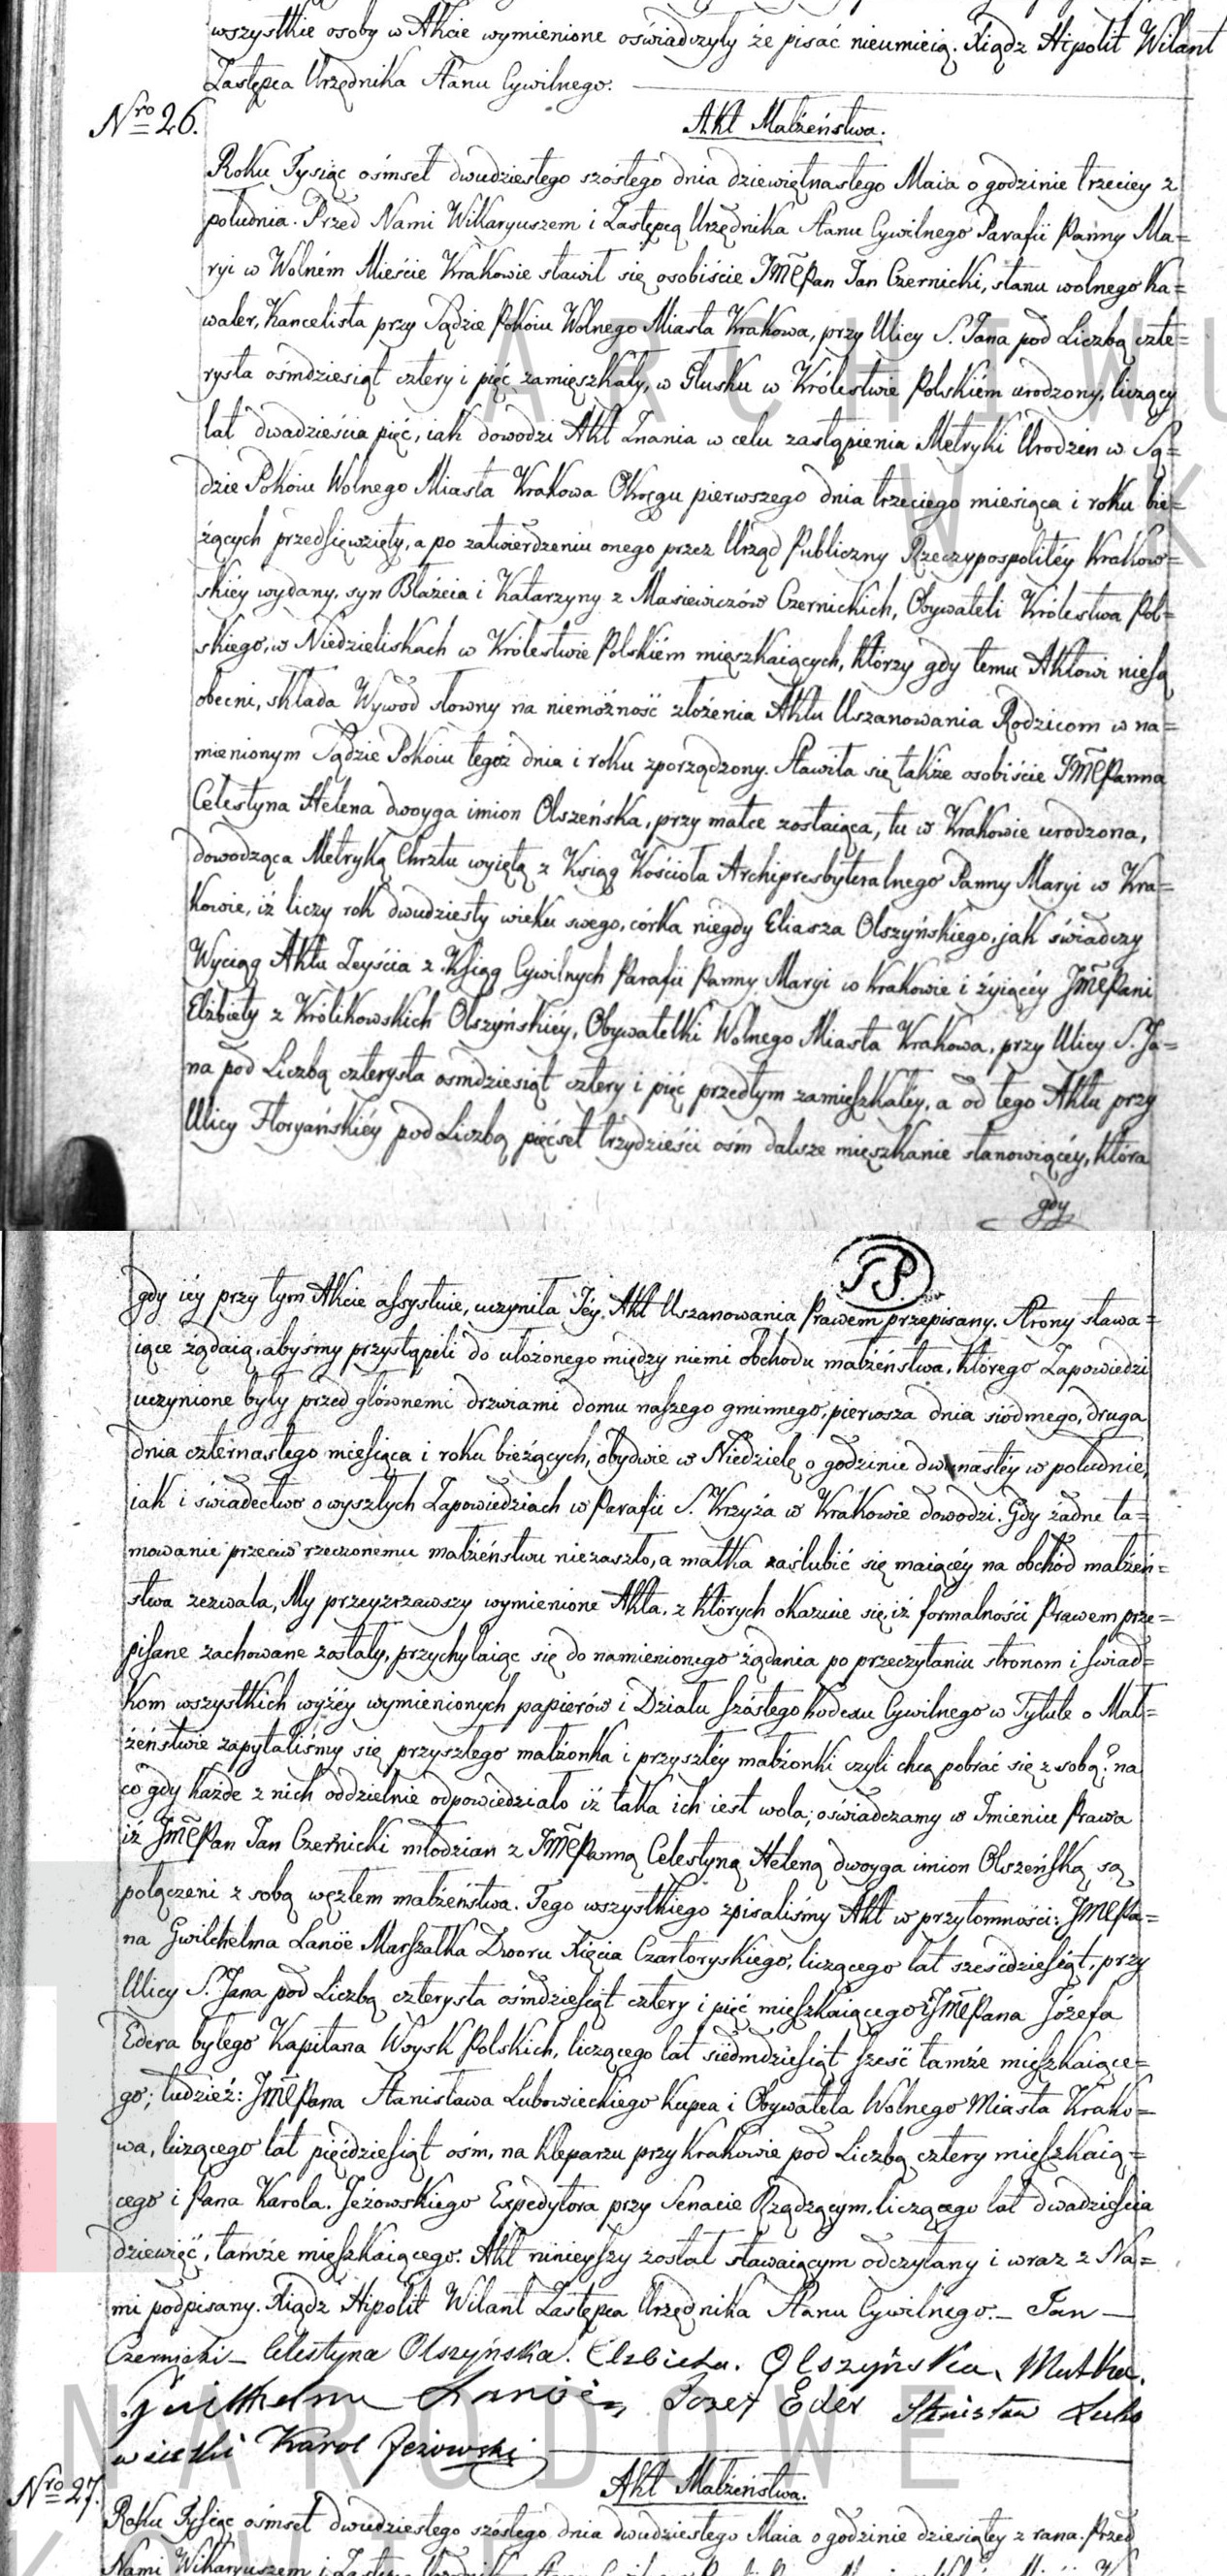 wszystkie osoby w Akcie wymienione oświadczyły że pisać nieumieią. Xiądz Hipolit Wilant
Zastępca Urzędnika Stanu Cywilnego.
Nro 26.
Akt Małżeństwa.
Roku Tysiąc ośmset dwudziestego szóstego dnia dziewiętnastego Maia o godzinie trzeciey z
południa. Przed Nami Wikaryuszem i Zastępcą Urzędnika Stanu Cywilnego Parafii Panny Ma=
ryi w Wolném Mieście Krakowie stawił się osobiście JMCPan Jan Czernicki, stanu wolnego Ka=
waler, Kancelista przy Sądzie Pokoiu Wolnego Miasta Krakowa, przy Ulicy S. Jana pod Liczbą czte=
rysta ośmdziesiąt cztery i pięć zamięszkały, w Głusku w Królestwie Polskiém urodzony, liczący
lat dwadzieścia pięć, iak dowodzi Akt Znania w celu zastąpienia Metryki Urodzen w Są=
dzie Pokoiu Wolnego Miasta Krakowa Okręgu pierwszego dnia trzeciego miesiąca i roku bie=
żących przedsięwzięty, a po zatwierdzeniu onego przez Urząd Publiczny Rzeczypospolitéy Krakow=
skiéy wydany, syn Błażeia i Katarzyny z Masiewiczów Czernickich, Obywateli Królestwa Pol=
skiego, w Niedzieliskach w Królestwie Polskiém mięszkaiących, którzy gdy temu Aktowi niesą
obecni, składa Wywód słowny na niemożność złożenia Aktu Uszanowania Rodzicom w na=
mienionym Sądzie Pokoiu tegoż dnia i roku zporządzony. Stawiła się także osobiście JMCPanna
Celestyna Helena dwoyga imion Olszeńska, przy matce zostaiąca, tu w Krakowie urodzona,
dowodząca Metryką Chrztu wyiętą z Ksiąg Kościoła Archipresbyteralnego Panny Maryi w Kra=
kowie, iż liczy rok dwudziesty wieku swego, córka niegdy Eliasza Olszyńskiego, jak świadczy
Wyciąg Aktu Zeyścia z Xsiąg Cywilnych Parafii Panny Maryi w Krakowie i żyiącéy JMCPani
Elżbiety z Królikowskich Olszyńskiéy, Obywatelki Wolnego Miasta Krakowa, przy Ulicy S. Ja=
na pod Liczbą czterysta osmdziesiąt cztery i pięć przedtym zamięszkałéy, a od tego Aktu przy
Ulicy Floryańskiéy pod Liczbą pięćset trzydzieści ośm dalsze mięszkanie stanowiącéy, która
gdy
gdy iéy przy tym Akcie assystuie, uczyniła Jéy Akt Uszanowania Prawem przepisany. Strony stawa=
iące żądaią, abyśmy przystąpili do ułożonego między niemi obchodu małżeństwa, którego Zapowiedzi
uczynione były przed głównemi drzwiami domu naszego gminnego, pierwsza dnia siódmego, druga
dnia czternastego miesiąca i roku bieżących, obydwie w Niedzielę o godzinie dwunastéy w południe,
iak i świadectwo o wyszłych Zapowiedziach w Parafii S. Krzyża w Krakowie dowodzi. Gdy żadne ta=
mowanie przeciw rzeczonemu małżeństwu niezaszło, a matka zaślubić się maiącéy na obchód małżeń=
stwa zezwala, My przeyzrzawszy wymienione Akta, z których okazuie się, iż formalności Prawem prze=
pisane zachowane zostały, przychylaiąc się do namienionego żądania po przeczytaniu stronom i świad=
kom wszystkich wyżéy wymienionych papierów i Działu szóstego Kodexu Cywilnego w Tytule o Mał=
żeństwie zapytaliśmy się przyszłego małżonka i przyszłéy małżonki czyli chcą pobrać się z sobą? na
co gdy każde z nich oddzielnie odpowiedziało iż taka ich iest wola; oświadczamy w Imieniu Prawa
iż JMCPan Jan Czernicki młodzian z JMCPanną Celestyną Heleną dwoyga imion Olszeńską są
połączeni z sobą węzłem małżeństwa. Tego wszystkiego zpisaliśmy Akt w przytomności: JMCPa=
na Gwilchelma Lanöe Marszałka Dworu Xięcia Czartoryskiego, liczącego lat sześćdziesiąt, przy
Ulicy S. Jana pod Liczbą czterysta ośmdziesiąt cztery i pięć mieszkaiącego i JMCPana Józefa
Edera byłego Kapitana Woysk Polskich, liczącego lat siedmdziesiąt sześć tamże mięszkaiące=
go; tudzież: JMCPana Stanisława Lubowieckiego Kupca i Obywatela Wolnego Miasta Krako=
wa, liczącego lat pięćdziesiąt ośm, na Kleparzu przy Krakowie pod Liczbą cztery mięszkaią=
cego i Pana Karola Jeżowskiego Expedytora przy Senacie Rządzącym, liczącego lat dwadzieścia
dziewięć, tamże mięszkaiącego. Akt ninieyszy został stawaiącym odczytany i wraz z Na=
mi podpisany. Xiądz Hipolit Wilant Zastępca Urzędnika Stanu Cywilnego. – Jan –
Czernicki – Celestyna Olszyńska. Elzbieta Olszyńska, Matka.
Guilhelm Lanöe, Jozef Eder Stanisław Lubo
wiecki Karol Jeżowski
Nro 27.
Akt Małżeństwa.
Roku Tysiąc ośmset dwudziestego szóstego dnia dwudziestego Maia o godzinie dziesiątéy z rana. Przed
Nami Wikaryuszem i